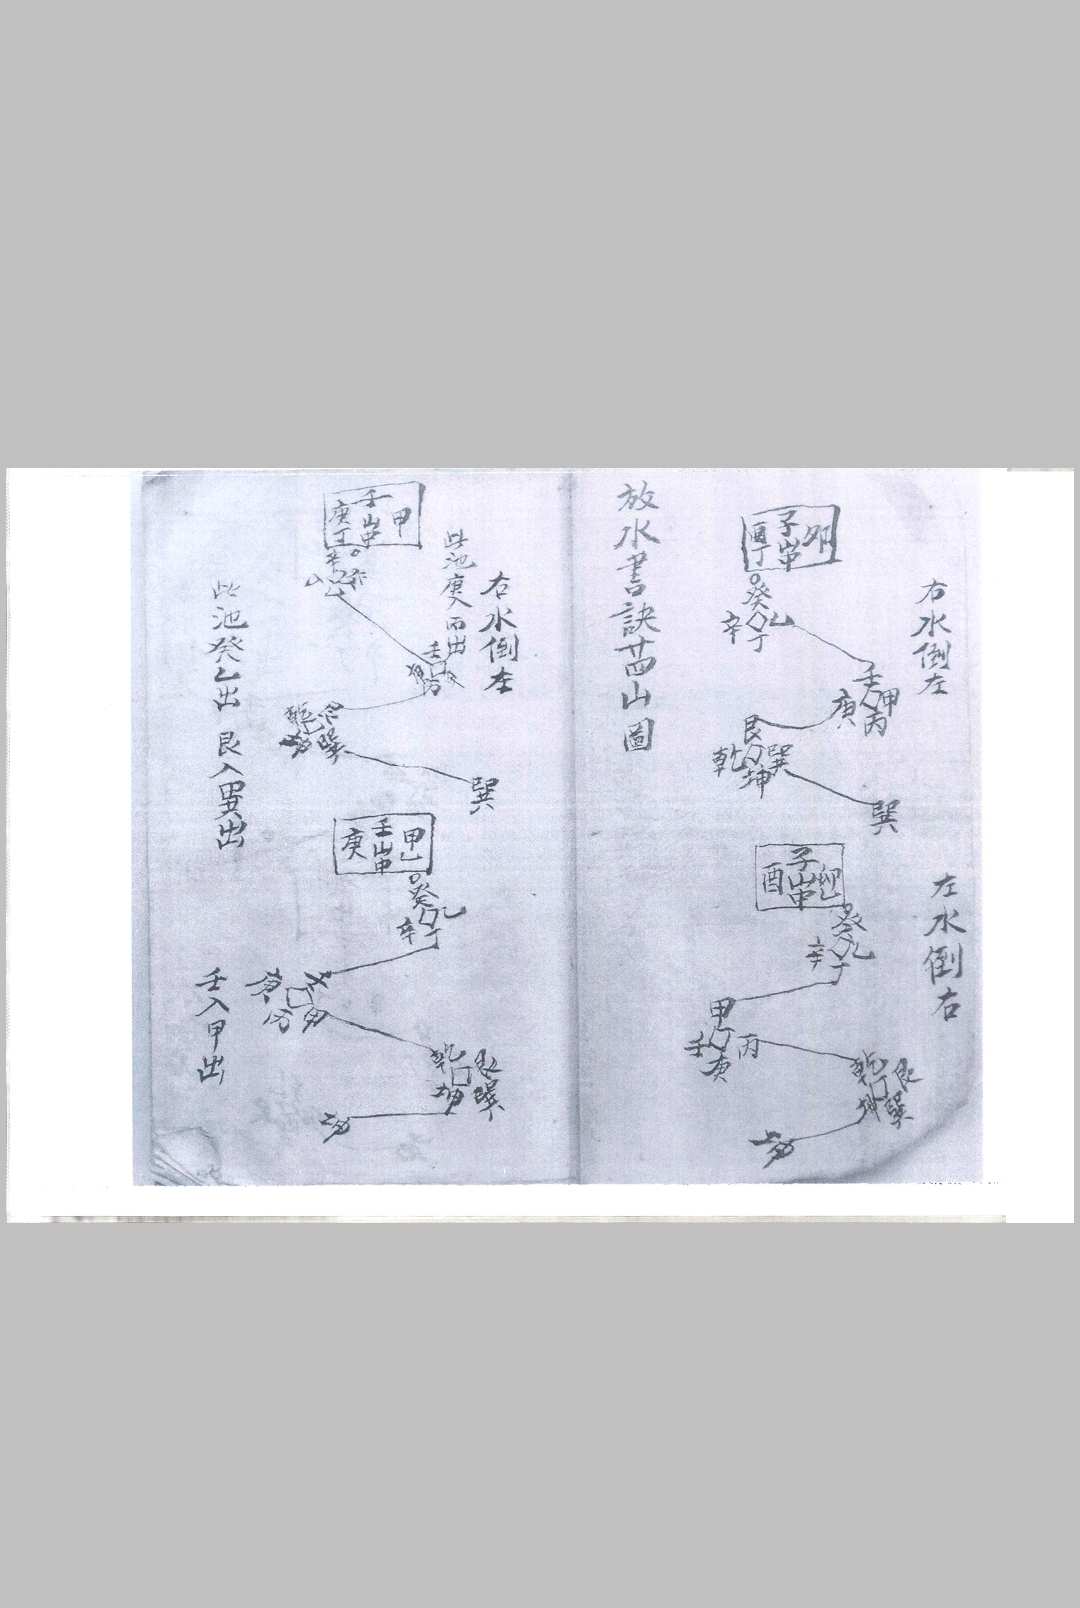 右水倒左
卯
子山中
酉丁
癸
乙
辛
丁
壬
甲
庚
丙
艮
乾
巽
坤
巽
左水倒右
子山中
酉
癸
乙
辛
丁
甲
壬
丙
庚
乾
艮
坤
巽
放水書訣廿四山圖
右水倒左
此池庚入丙出
甲
壬山中
庚丁
壬
乾
巽
巽
甲乙
壬山中
庚
癸
乙
辛
丁
庚
甲
乾
艮
坤
巽
此池癸乙出 艮入巽出
壬入甲出